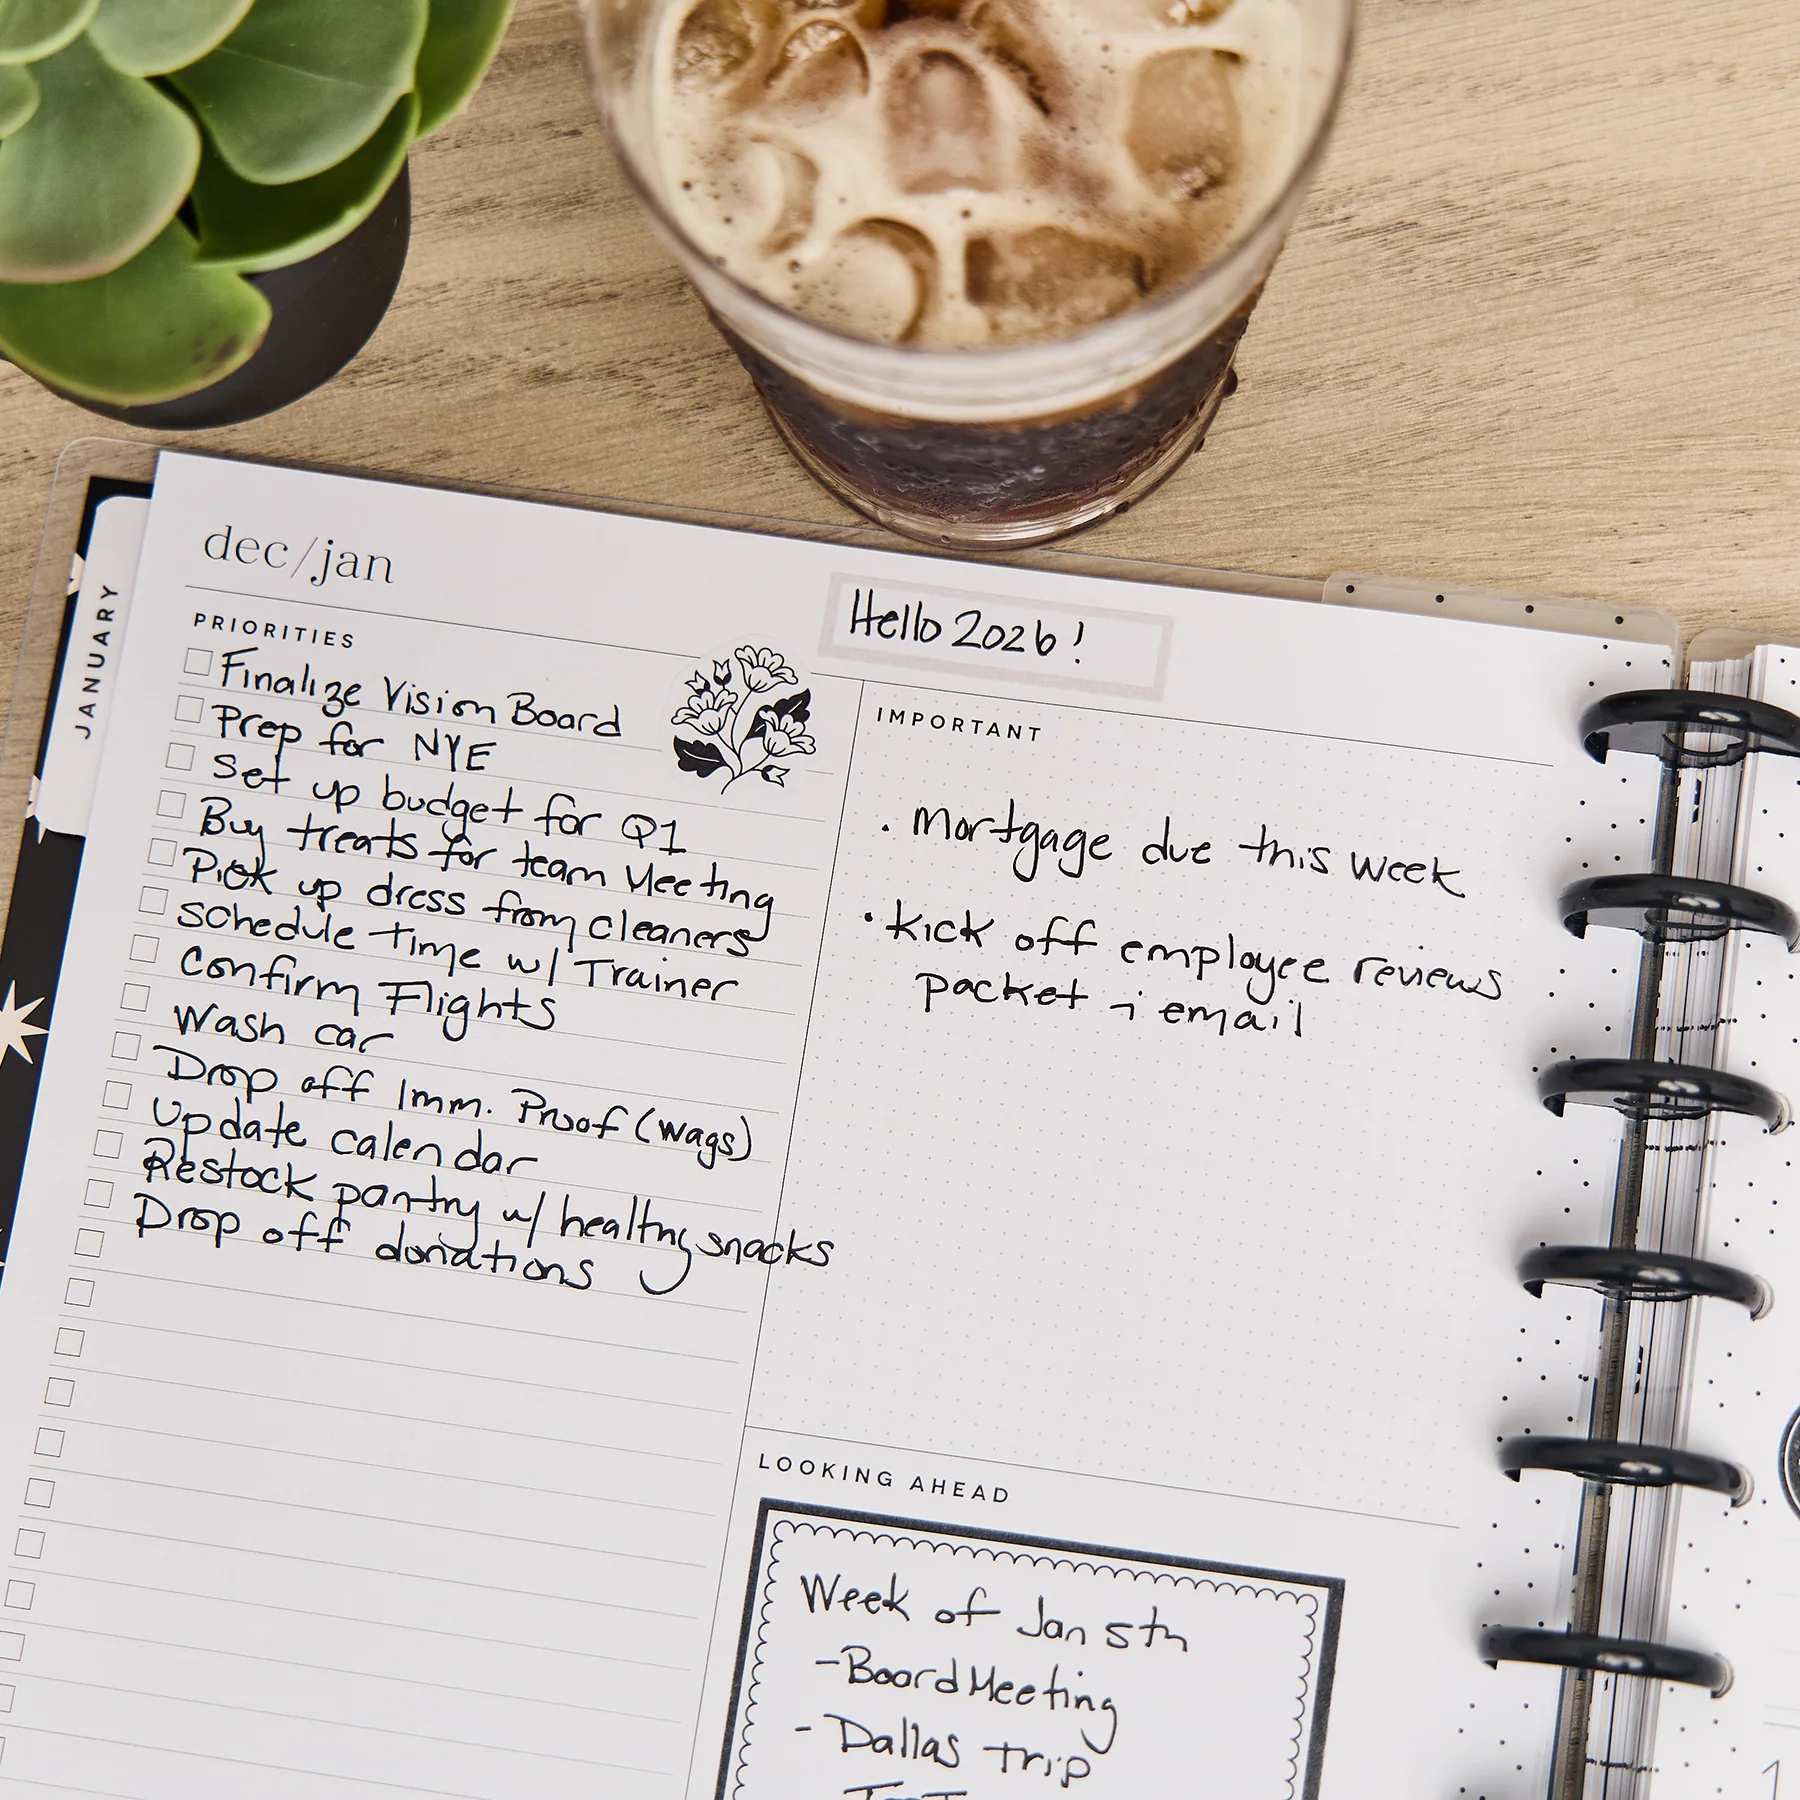 dec/jan
JANUARY
Hello 2026!
PRIORITIES
Finalize Vision Board
Prep for NYE
Set up budget for Q1
Buy treats for team Meeting
Pick up dress from cleaners
Schedule time w/ Trainer
Confirm Flights
Wash car
Drop off Imm. Proof (wags)
Update calendar
Restock pantry w/ healthy snacks
Drop off donations
IMPORTANT
• Mortgage due this week
• Kick off employee reviews
packet + email
LOOKING AHEAD
Week of Jan 5th
- Board Meeting
- Dallas trip